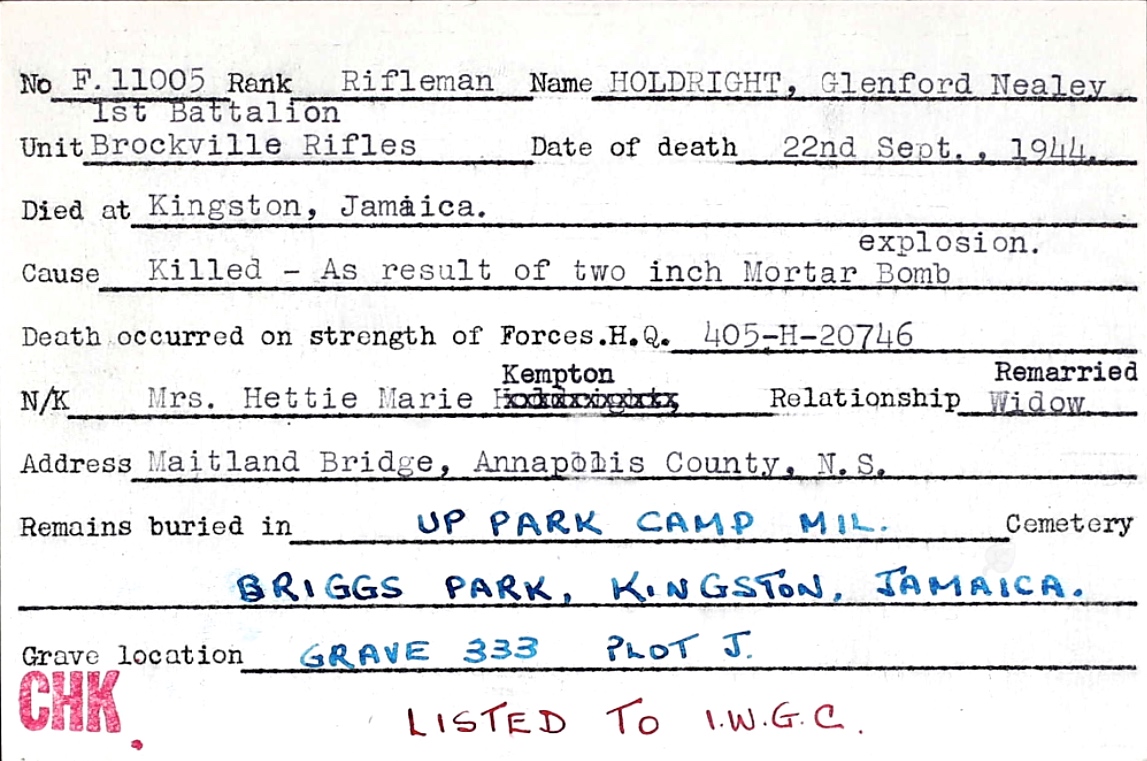 No F.11005 Rank Rifleman Name HOLDRIGHT, Glenford Nealey
1st Battalion
Unit Brockville Rifles Date of death 22nd Sept., 1944.
Died at Kingston, Jamaica.
explosion.
Cause Killed - As result of two inch Mortar Bomb
Death occurred on strength of Forces.H.Q. 405-H-20746
Kempton Remarried
N/K Mrs. Hettie Marie Relationship Widow
Address Maitland Bridge, Annapolis County, N.S.
Remains buried in UP PARK CAMP MIL. Cemetery
BRIGGS PARK, KINGSTON, JAMAICA.
Grave location GRAVE 333 PLOT J.
CHK.
LISTED TO I.W.G.C.